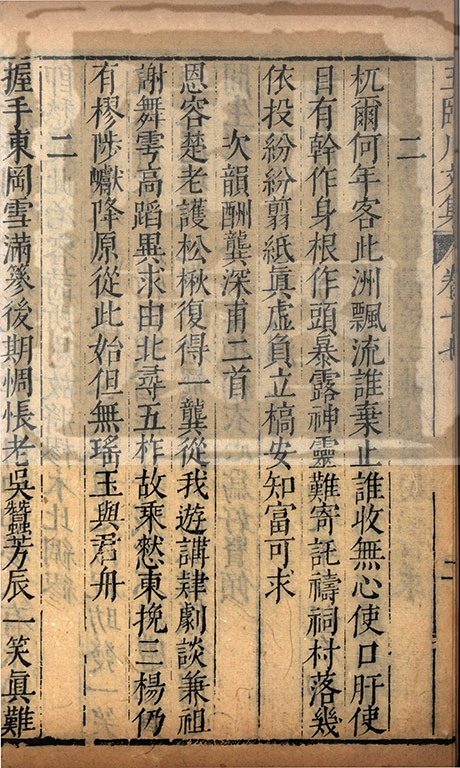 王臨川文集 卷十七 二
二
杌爾何年客此洲飄流誰棄止誰收無心使口肝使
目有幹作身根作頭暴露神靈難寄託禱祠村落幾
依投紛紛翦紙真虛負立槁安知富可求
次韻酬龔深甫二首
恩容楚老護松楸復得一龔從我遊講肄劇談兼祖
謝舞雩高蹈異求由北尋五柞故乘憗東挽三楊仍
有樛陟巘降原從此始但無瑤玉與君舟
二
握手東岡雪滿篸後期惆悵老吳蠶芳辰一笑真難